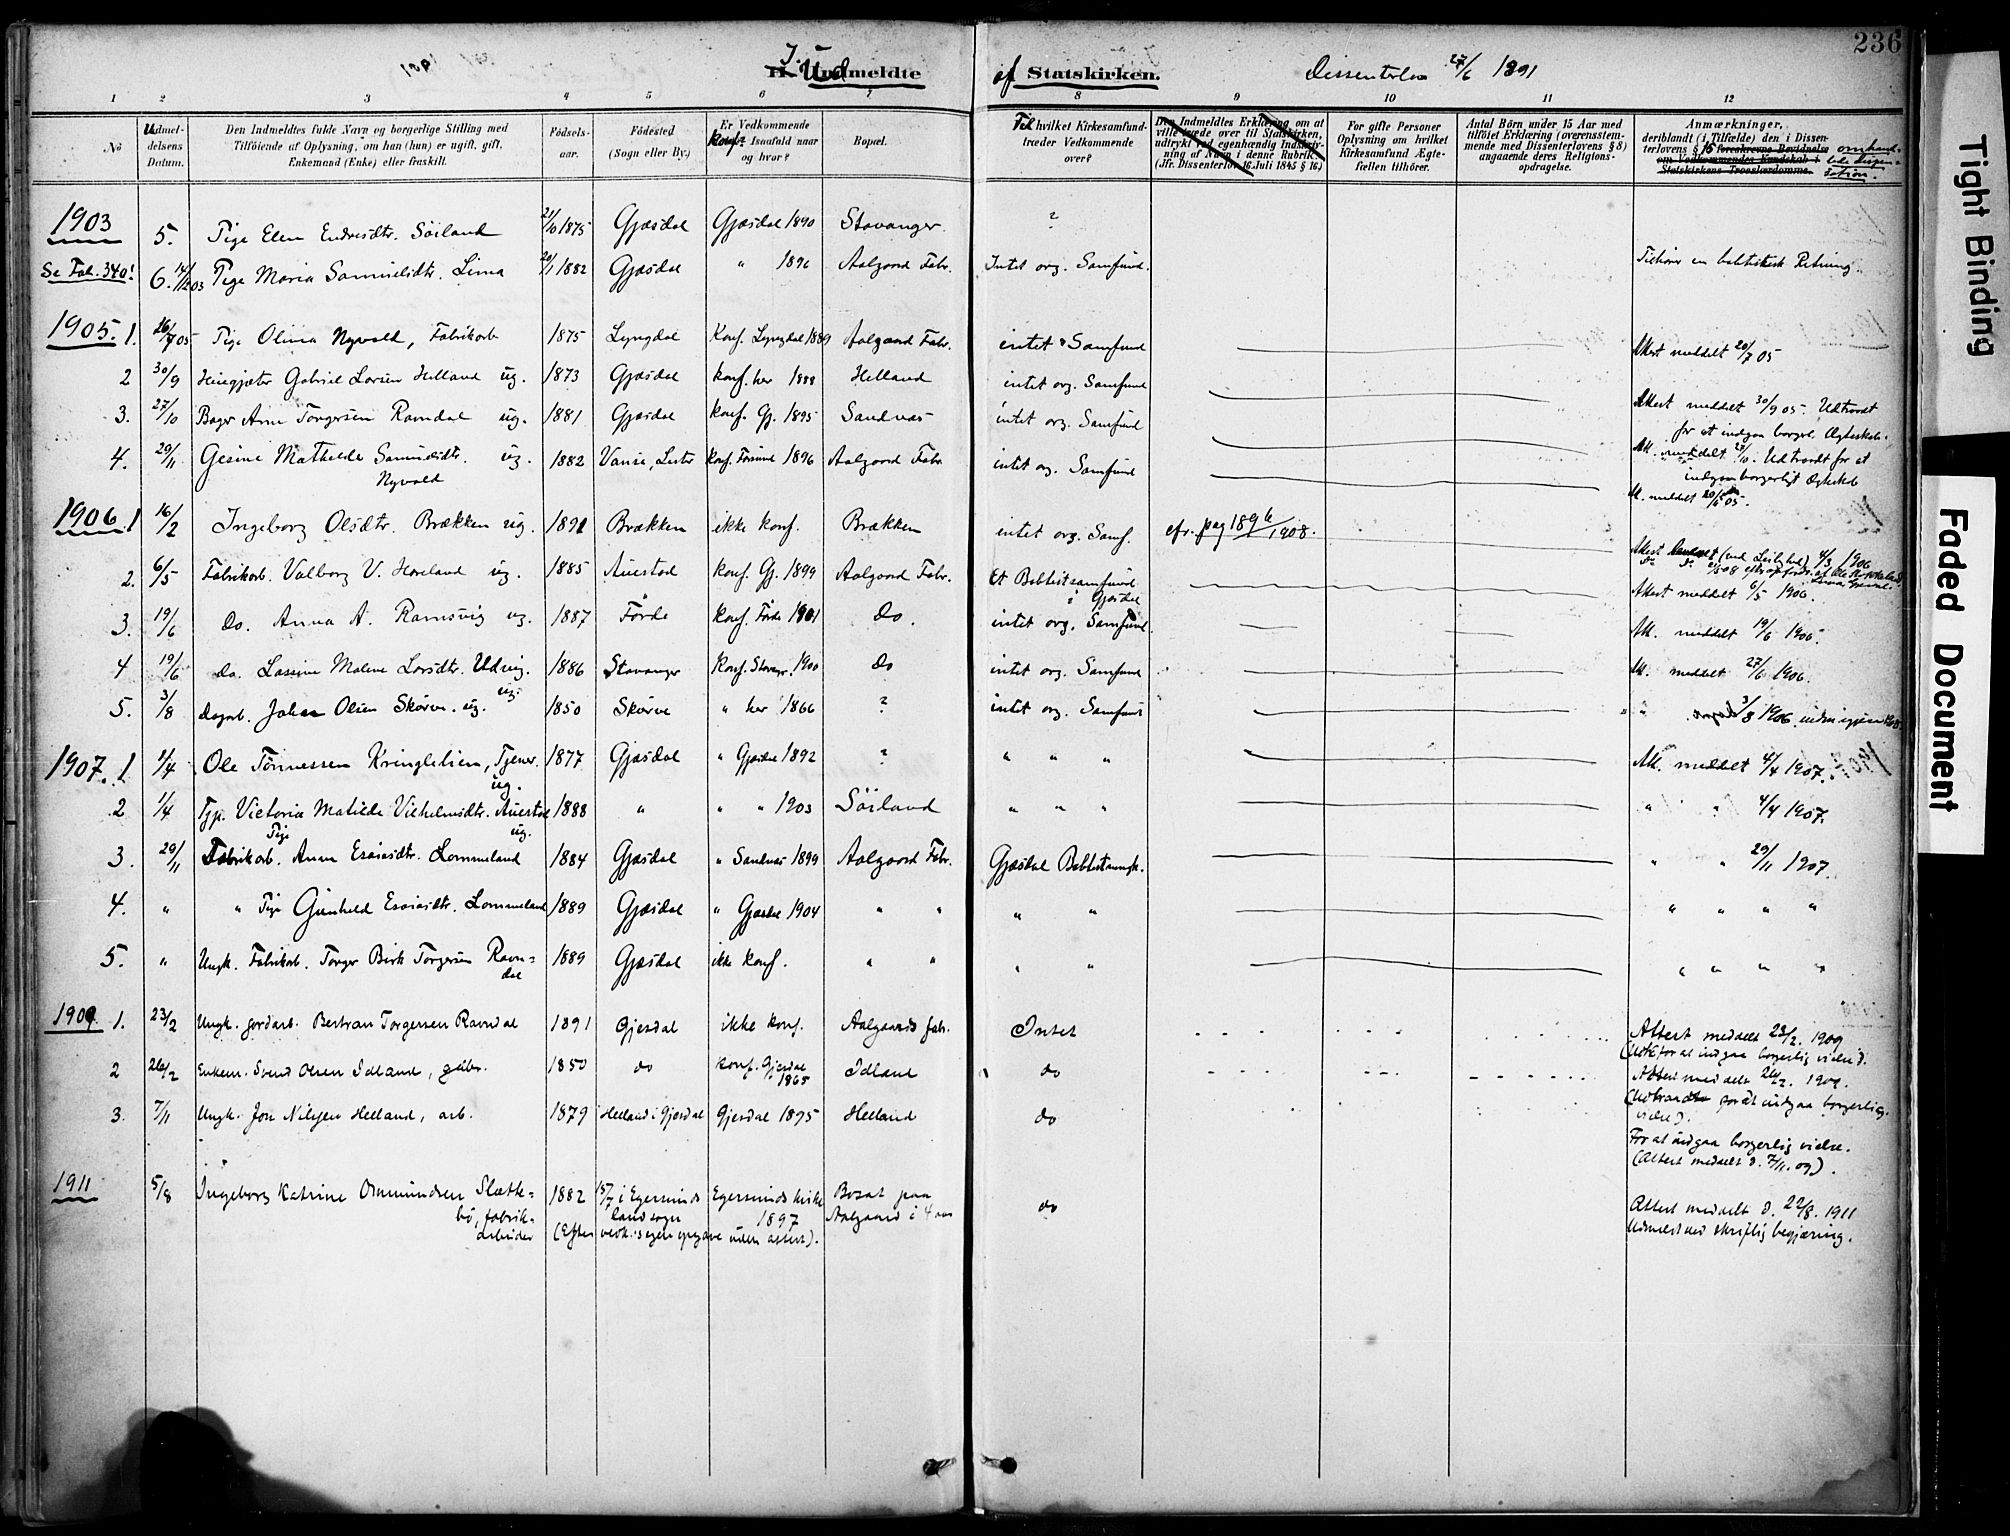 236
I. Udmeldte af Statskirken. Dissenterlov 27/6 1891
1 2 3 4 5 6 7 8 9 10 11 12
No
Udmel-
delsens
Datum.
Den Indmeldtes fulde Navn og borgerlige Stilling med
Tilföiende af Oplysning, om han (hun) er ugift, gift,
Enkemand (Enke) eller fraskilt.
Födsels-
aar.
Födested
(Sogn eller By.)
Er Vedkommende
konf? Isaafald naar
og hvor?
Bopæl.
Til hvilket Kirkesamfund
træder Vedkommende
over?
Den Indmeldtes Erklæring om at
ville træde over til Statskirken,
udtrykt ved egenhændig Indskriv-
ning af Navn i denne Rubrik.
(Jfr. Dissenterlov 16 Juli 1845 § 16.)
For gifte Personer
Oplysning om hvilket
Kirkesamfund Ægte-
fællen tilhörer.
Antal Börn under 15 Aar med
tilföiet Erklæring (overensstem-
mende med Dissenterlovens § 8)
angaaende deres Religions-
opdragelse.
Anmærkninger,
deriblandt (i Tilfælde) den i Dissen-
terlovens § 15 foreskrevne Bevidnelse
om Vedkommendes Kundskab i
Statskirkens Troeslærdomme.
1903 5. Pige Elen Endresdtr. Söiland 21/10 1875 Gjæsdal Gjæsdal 1890 Stavanger ?
Se Fol. 340! 6. 14/12 03 Pige Maria Samuelsdtr. Lima 20/1 1882 Gjæsdal " 1896 Aalgaard Fabr. Intet org. Samfund. Tilhører en babtistisk Retning
1905. 1. 26/7 05 Pige Olivia Nyvold, Fabrikarb 1875 Lyngdal Konf. Lyngdal 1889 Aalgaard Fabr. intet Samfund Attest meddelt 20/7 05
2 30/9 Gabriel Larsen Helland ug. 1873 Gjæsdal konf. her 1888 Helland intet org. Samfund Attest meddelt 30/9 05. Udtraadt
for at indgaa borgerl. Ægteskab.
3. 27/10 Bager Arne Torgersen Ravndal ug. 1881 Gjæsdal konf. Gj. 1895 Sandnæs intet org. Samfund Att. meddelt 27/10. Udtraadt for at
indgaa borgerligt Ægteskab
4. 29/11 Gesine Mathilde Samuelsdtr. ug. 1882 Vanse, Lister konf. Forsand 1896 Aalgaard Fabr. intet org. Samfund
Nyvold
1906. 1 16/2 Ingeborg Olsdtr. Brækken ug. 1891 Brækken ikke konf. Brækken intet org. Samf. cfr. pag 189 1908.
2. 6/5 Fabrikarb. Valborg V. Haveland ug. 1885 Auestad konf. Gj. 1899 Aalgaard Fabr. Et Babtistsamfund
i Gjæsdal Attest meddelt 6/5 1906.
3. 19/6 do. Anna A. Ramsvig ug. 1887 Førde konf. Førde 1901 do. intet org. Samfund. Att. meddelt 19/6 1906.
4 19/6 do. Lassine Malene Larsdtr. Udvig ug. 1886 Stavanger konf. Stavgr. 1900 do intet org. Samfund Att. meddelt 27/6 1906.
5. 3/8 Dagarb. Johan Olsen Skørve. ug. 1850 Skørve " her 1866 ? intet org. Samfund " " 3/8 1906.
1907. 1 1/4 Ole Tönnessen Kringlelien, Tjener. ug. 1877 Gjæsdal " Gjæsdal 1892 ? " " " Att. meddelt 4/4 1907.
2 1/4 Tjp. Victoria Matilde Vilhelmsdtr. Auestad ug. 1888 " " " 1903 Söiland " " " " " 4/4 1907.
3. 29/11 Fabrikarb. Pige Anna Esaiasdtr. Lommeland 1884 Gjæsdal " Sandnæs 1899 Aalgaard Fabr. Gjæsdal Babtistmgh. " " 29/11 1907.
4. " " Pige Gunhild Esaiasdtr. Lommeland 1889 Gjæsdal " Gjæsdal 1904 " " " " " " " "
5. " Ungk. Fabrikarb. Torger Birk Torgersen Ravn-
dal 1889 Gjæsdal ikke konf. " " " " " " " "
1909 1. 23/2 Ungk. gardarb. Bertran Torgersen Ravndal 1891 Gjesdal ikke konf. Aalgaards fabr. Intet Attest meddelt 23/2. 1909
(Udtr. for at indgaa borgerlig vielse).
2 26/2 Enkem. Svend Olsen Idland, gdbr. 1850 do konf. Gjesdal
1865 Idland do Attest meddelt 26/2. 1909.
(Udtraadt for at indgaa borgerlig
vielse).
3. 7/11 Ungk. Jon Nilsen Helland, arb. 1879 Helland i Gjesdal Gjesdal 1895 Helland do For at indgaa borgerlig vielse.
(Attest meddelt d. 7/11.09).
1911 5/8 Ingeborg Katrine Ommundsen Slætte-
bö, fabrik-
arbeider 1882 15/7 i Egersunds
landsogn Egersunds kirke
1897 Bosat paa
Aalgaard i 4 aar do Attest meddelt d. 22/8. 1911
Udmeldt ved skriftlig begjæring.
(Efter vedk.s egen opgave uden attest).
Tight Binding
Faded Document